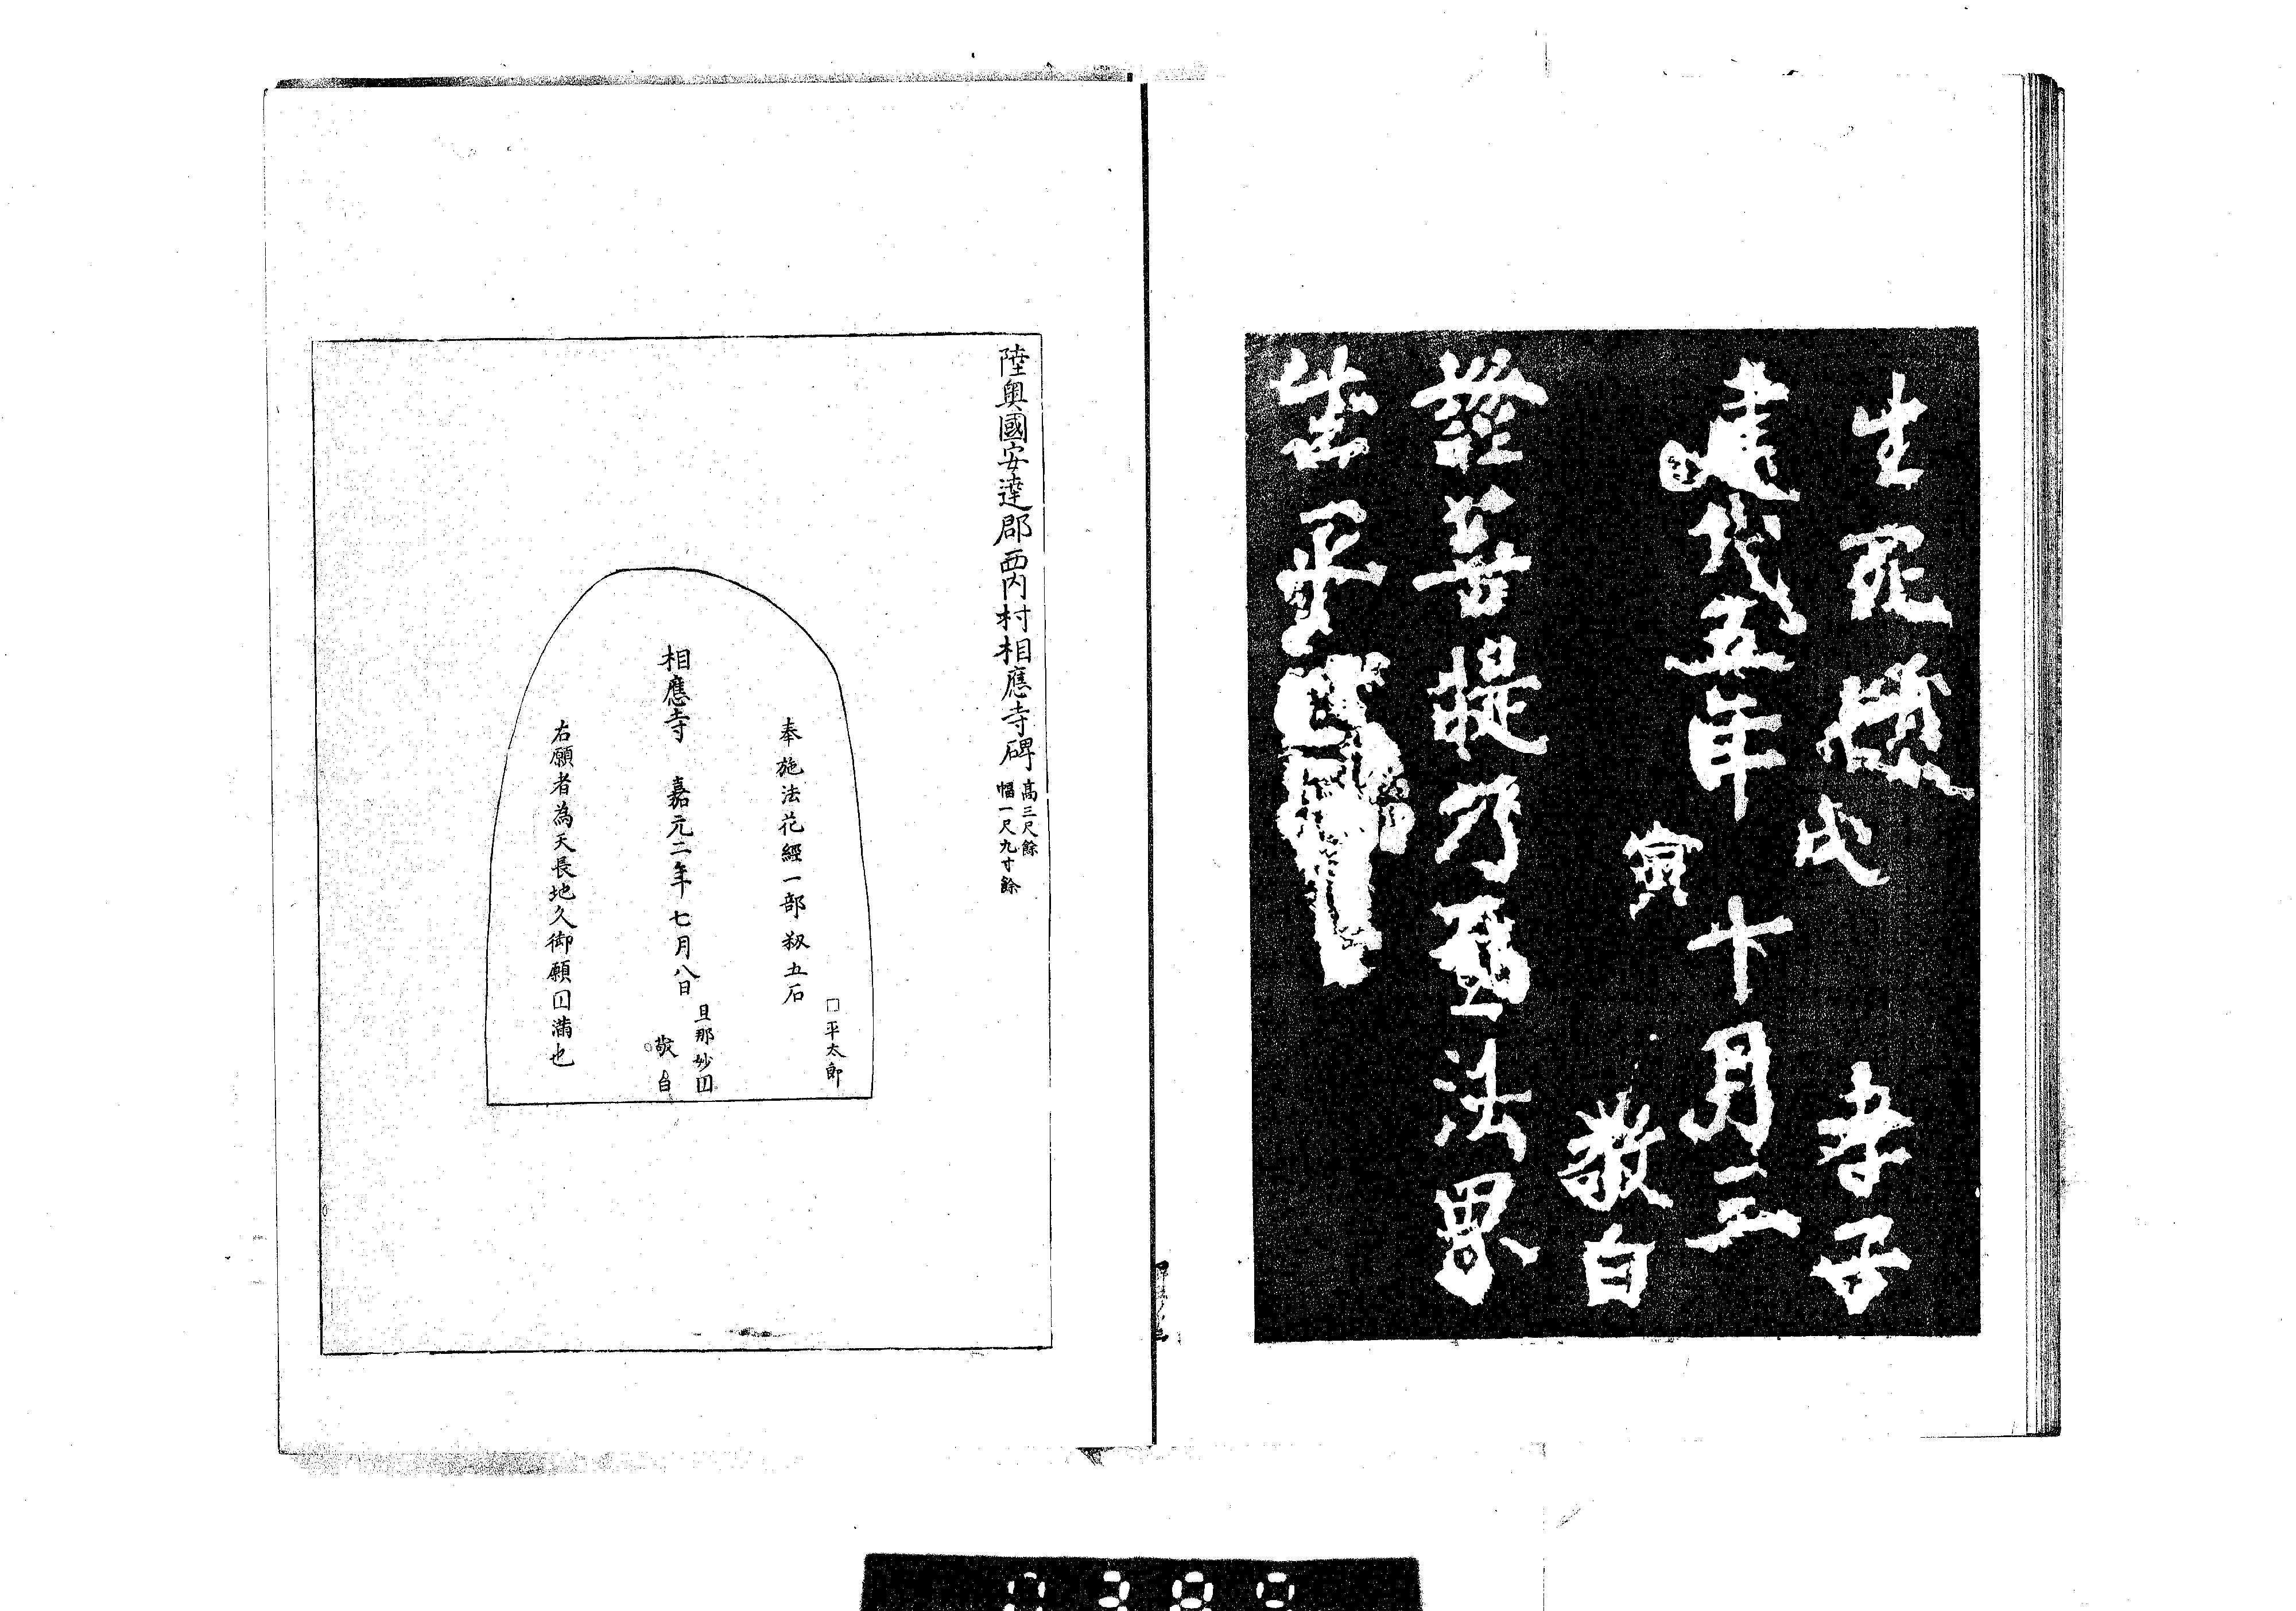 生死
戊
孝子
建代五年十月三日
寅
敬白
證菩提乃至法界
平等
陸奥國安達郡西内村相應寺碑
高三尺餘
幅一尺九寸餘
□平太郎
奉施法花經一部籾五石
相應寺 嘉元二年七月八日
旦那妙囗
敬白
右願者為天長地久御願囗滿也